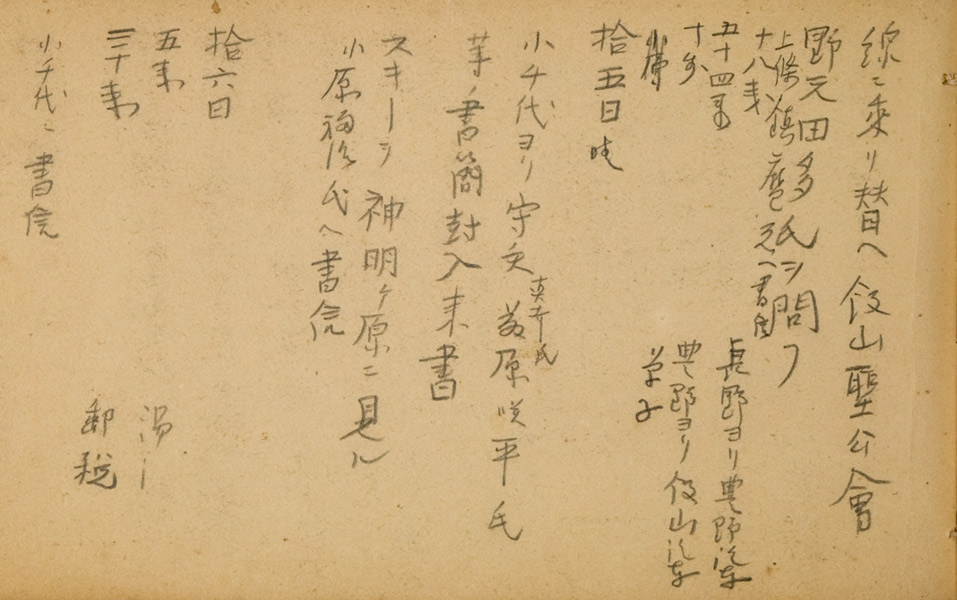 線ニ乗リ替ヘ 飯山聖公會
野元田多氏ヲ問フ
上條 氏ヘ書信
十八戋 長野ヨリ豊野汽車
五十四戋 豊野ヨリ飯山汽車
十戋 菓子
拾五日 晴
小千代ヨリ守矢真幸氏 萩原咲平氏
筆ノ書簡封入来書
スキーヲ神明ケ原ニ見ル
小原福治氏ヘ書信
拾六日
五戋 湯
三十戋 郵税
小千代ニ書信